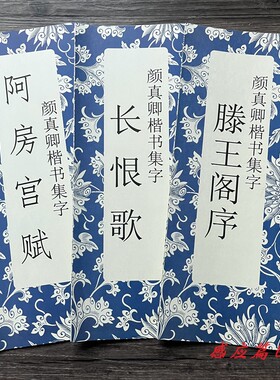 阿房宫赋
颜真卿楷书集字
长恨歌
颜真卿楷书集字
滕王阁序
颜真卿楷书集字
感应篇